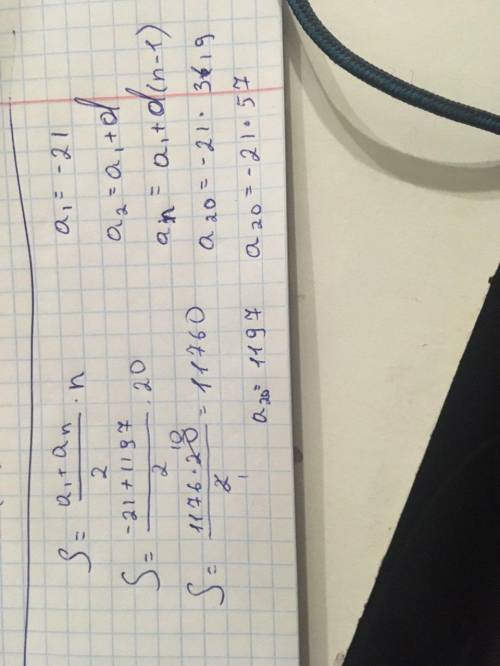 a₁ = -21
a₂ = a₁ + d
aₙ = a₁ + d(n-1)
a₂₀ = -21 · 3 · 19
a₂₀ = -21 · 57
a₂₀ = 1197
S = (a₁ + aₙ)/2 · n
S = (-21 + 1197)/2 · 20
S = (1176 · 20)/2 = 11760
10
1